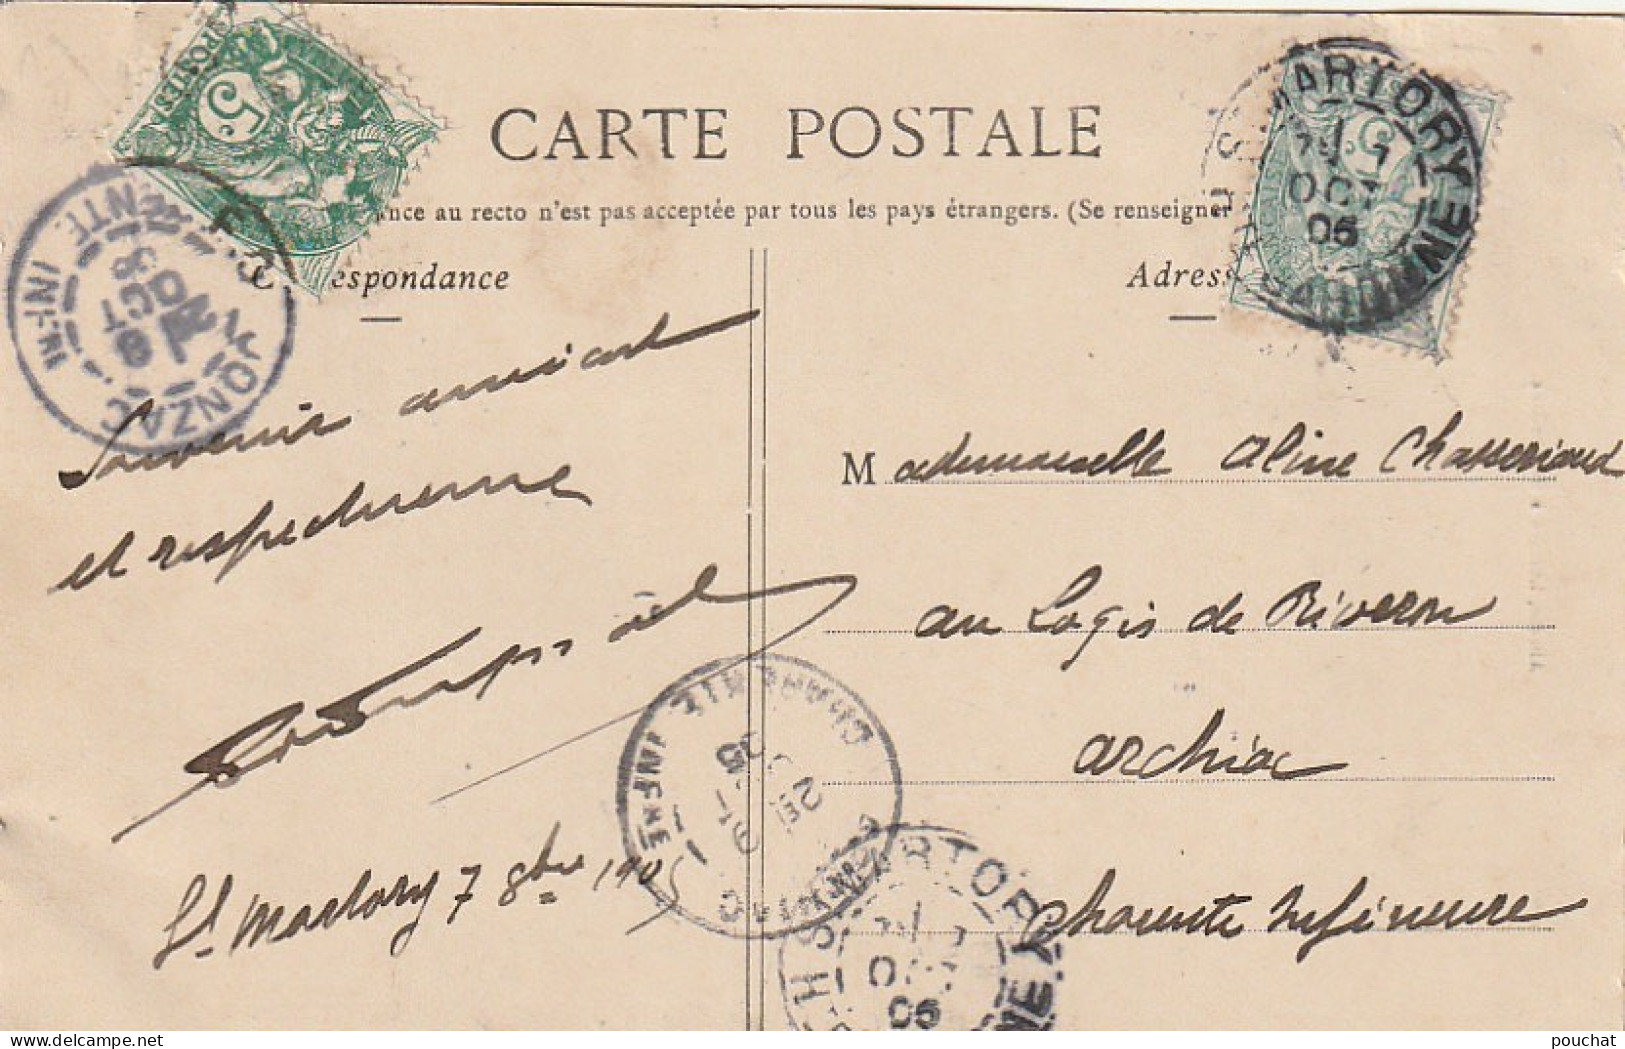 POSTES
5c
CARTE POSTALE
ance au recto n'est pas acceptée par tous les pays étrangers. (Se renseigner
Correspondance
Adress
S MARTORY
7 OCT
05
JONZAC
OCT
INFRE
Souvenir amical
et respectueux
St Martory 7 8bre 1905
Mademoiselle Aline Chasseriaud
au Logis de Riveron
Archiac
Charente Inférieure
ARCHIAC
CHARENTE INFRE
S MARTORY
05
pouchat